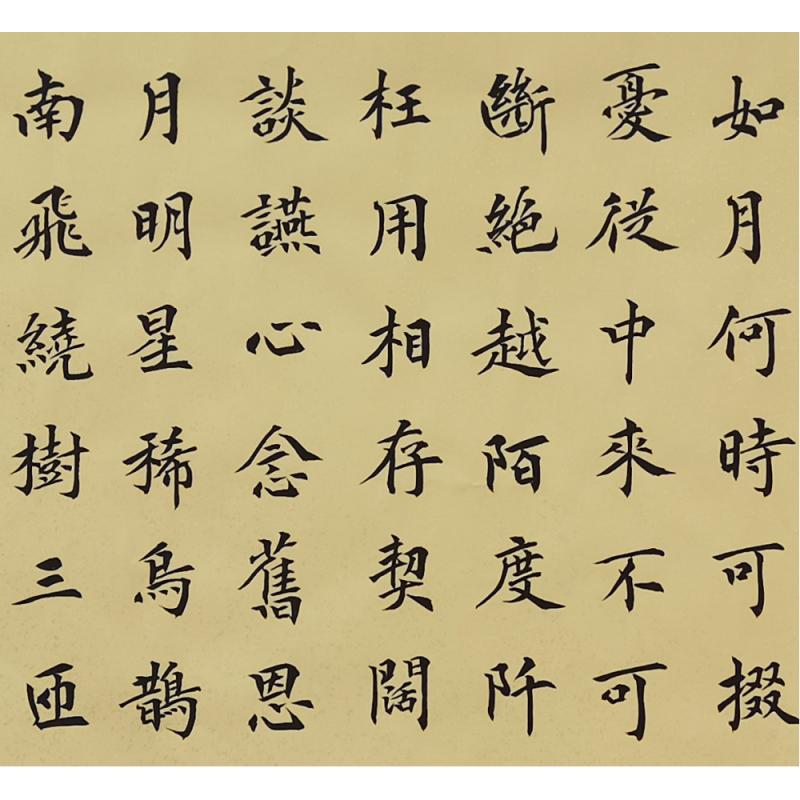 如月何時可掇
憂從中來不可
斷絶越陌度阡
枉用相存契闊
談讌心念舊恩
月明星稀烏鵲
南飛繞樹三匝